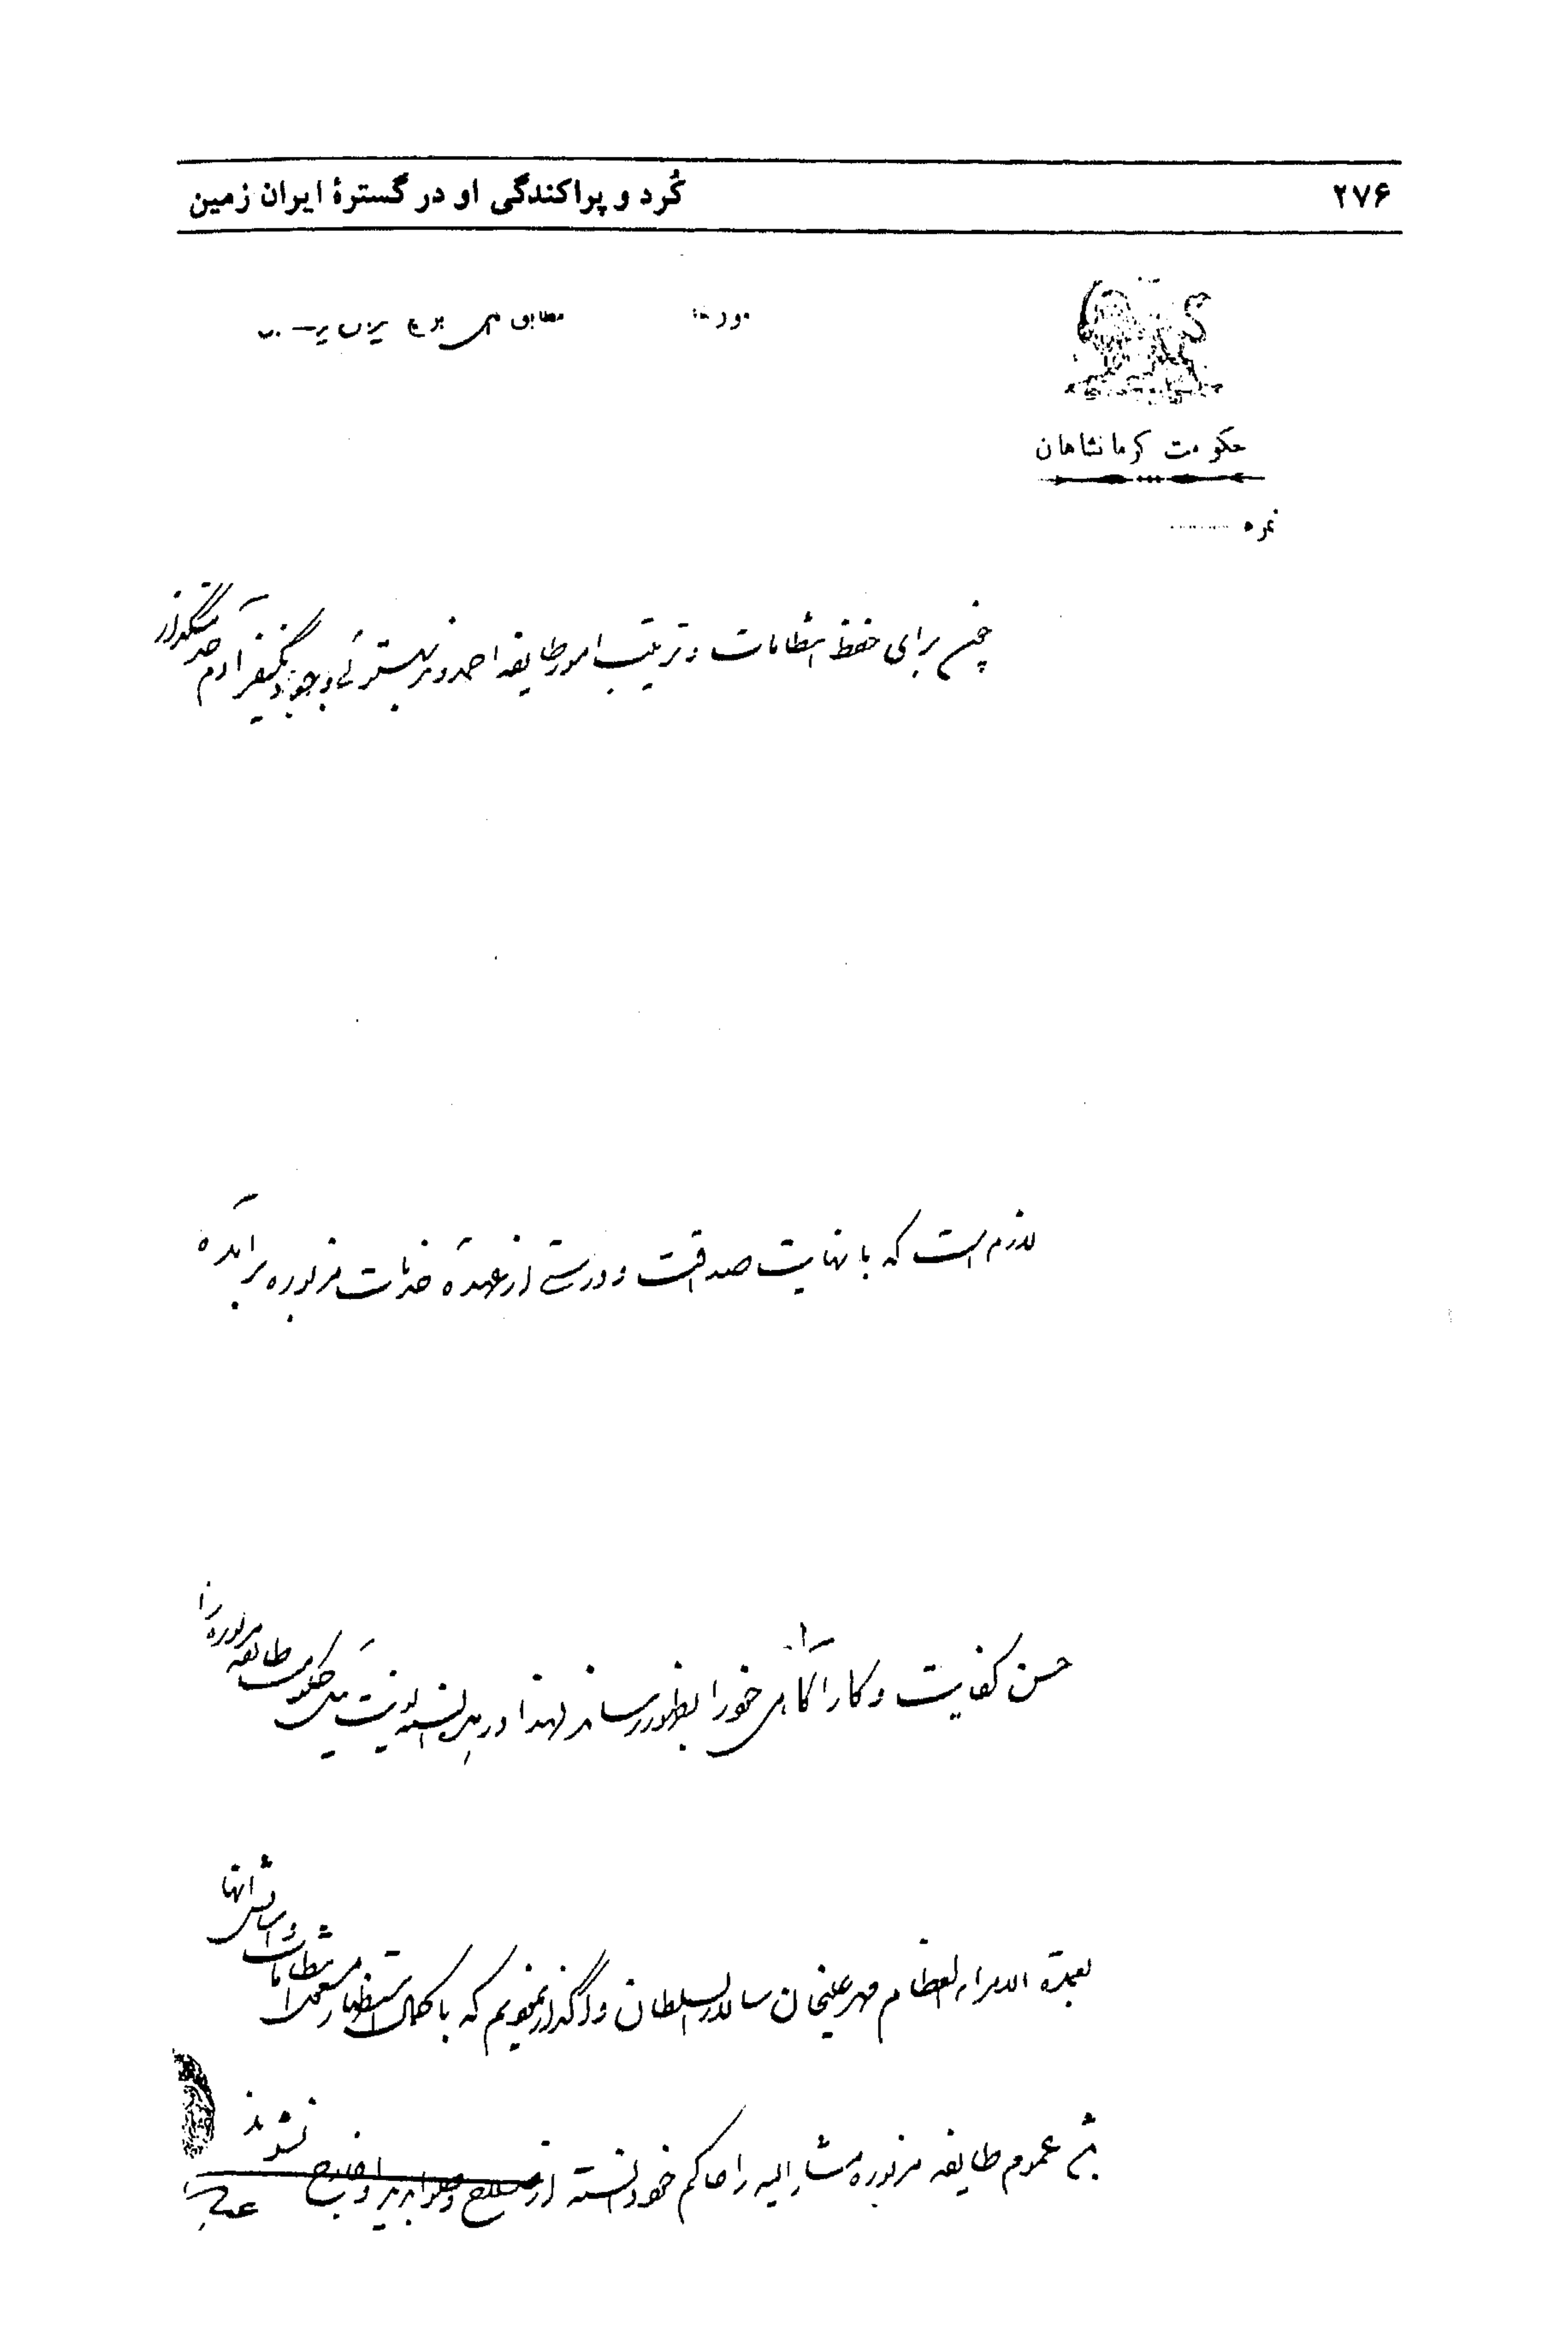 ۲۷۶ کُرد و پراکندگی او در گسترهٔ ایران زمین
مورخه مطابق
حکومت کرمانشاهان
نمره
چون برای حفظ انتظامات و ترتیب امور طایفه احمدوند بهتوئی وجود یکنفر آدم خدمتگذار
لازم است که با نهایت صداقت و درستی از عهدهٔ خدمات مزبوره برآمده
حسن کفایت و کارآگاهی خود را بظهور رساند لهذا در هذه السنه حکومت طایفه مزبوره را
بعمدة الامراء العظام مهرعلیخان سالار السلطان واگذار نمودیم که با کمال استظهار مشغول انتظامات و آسایش آنها
عموم طایفه مزبوره مشارالیه را حاکم خود دانسته از صلاح و صوابدید او خارج نشوند